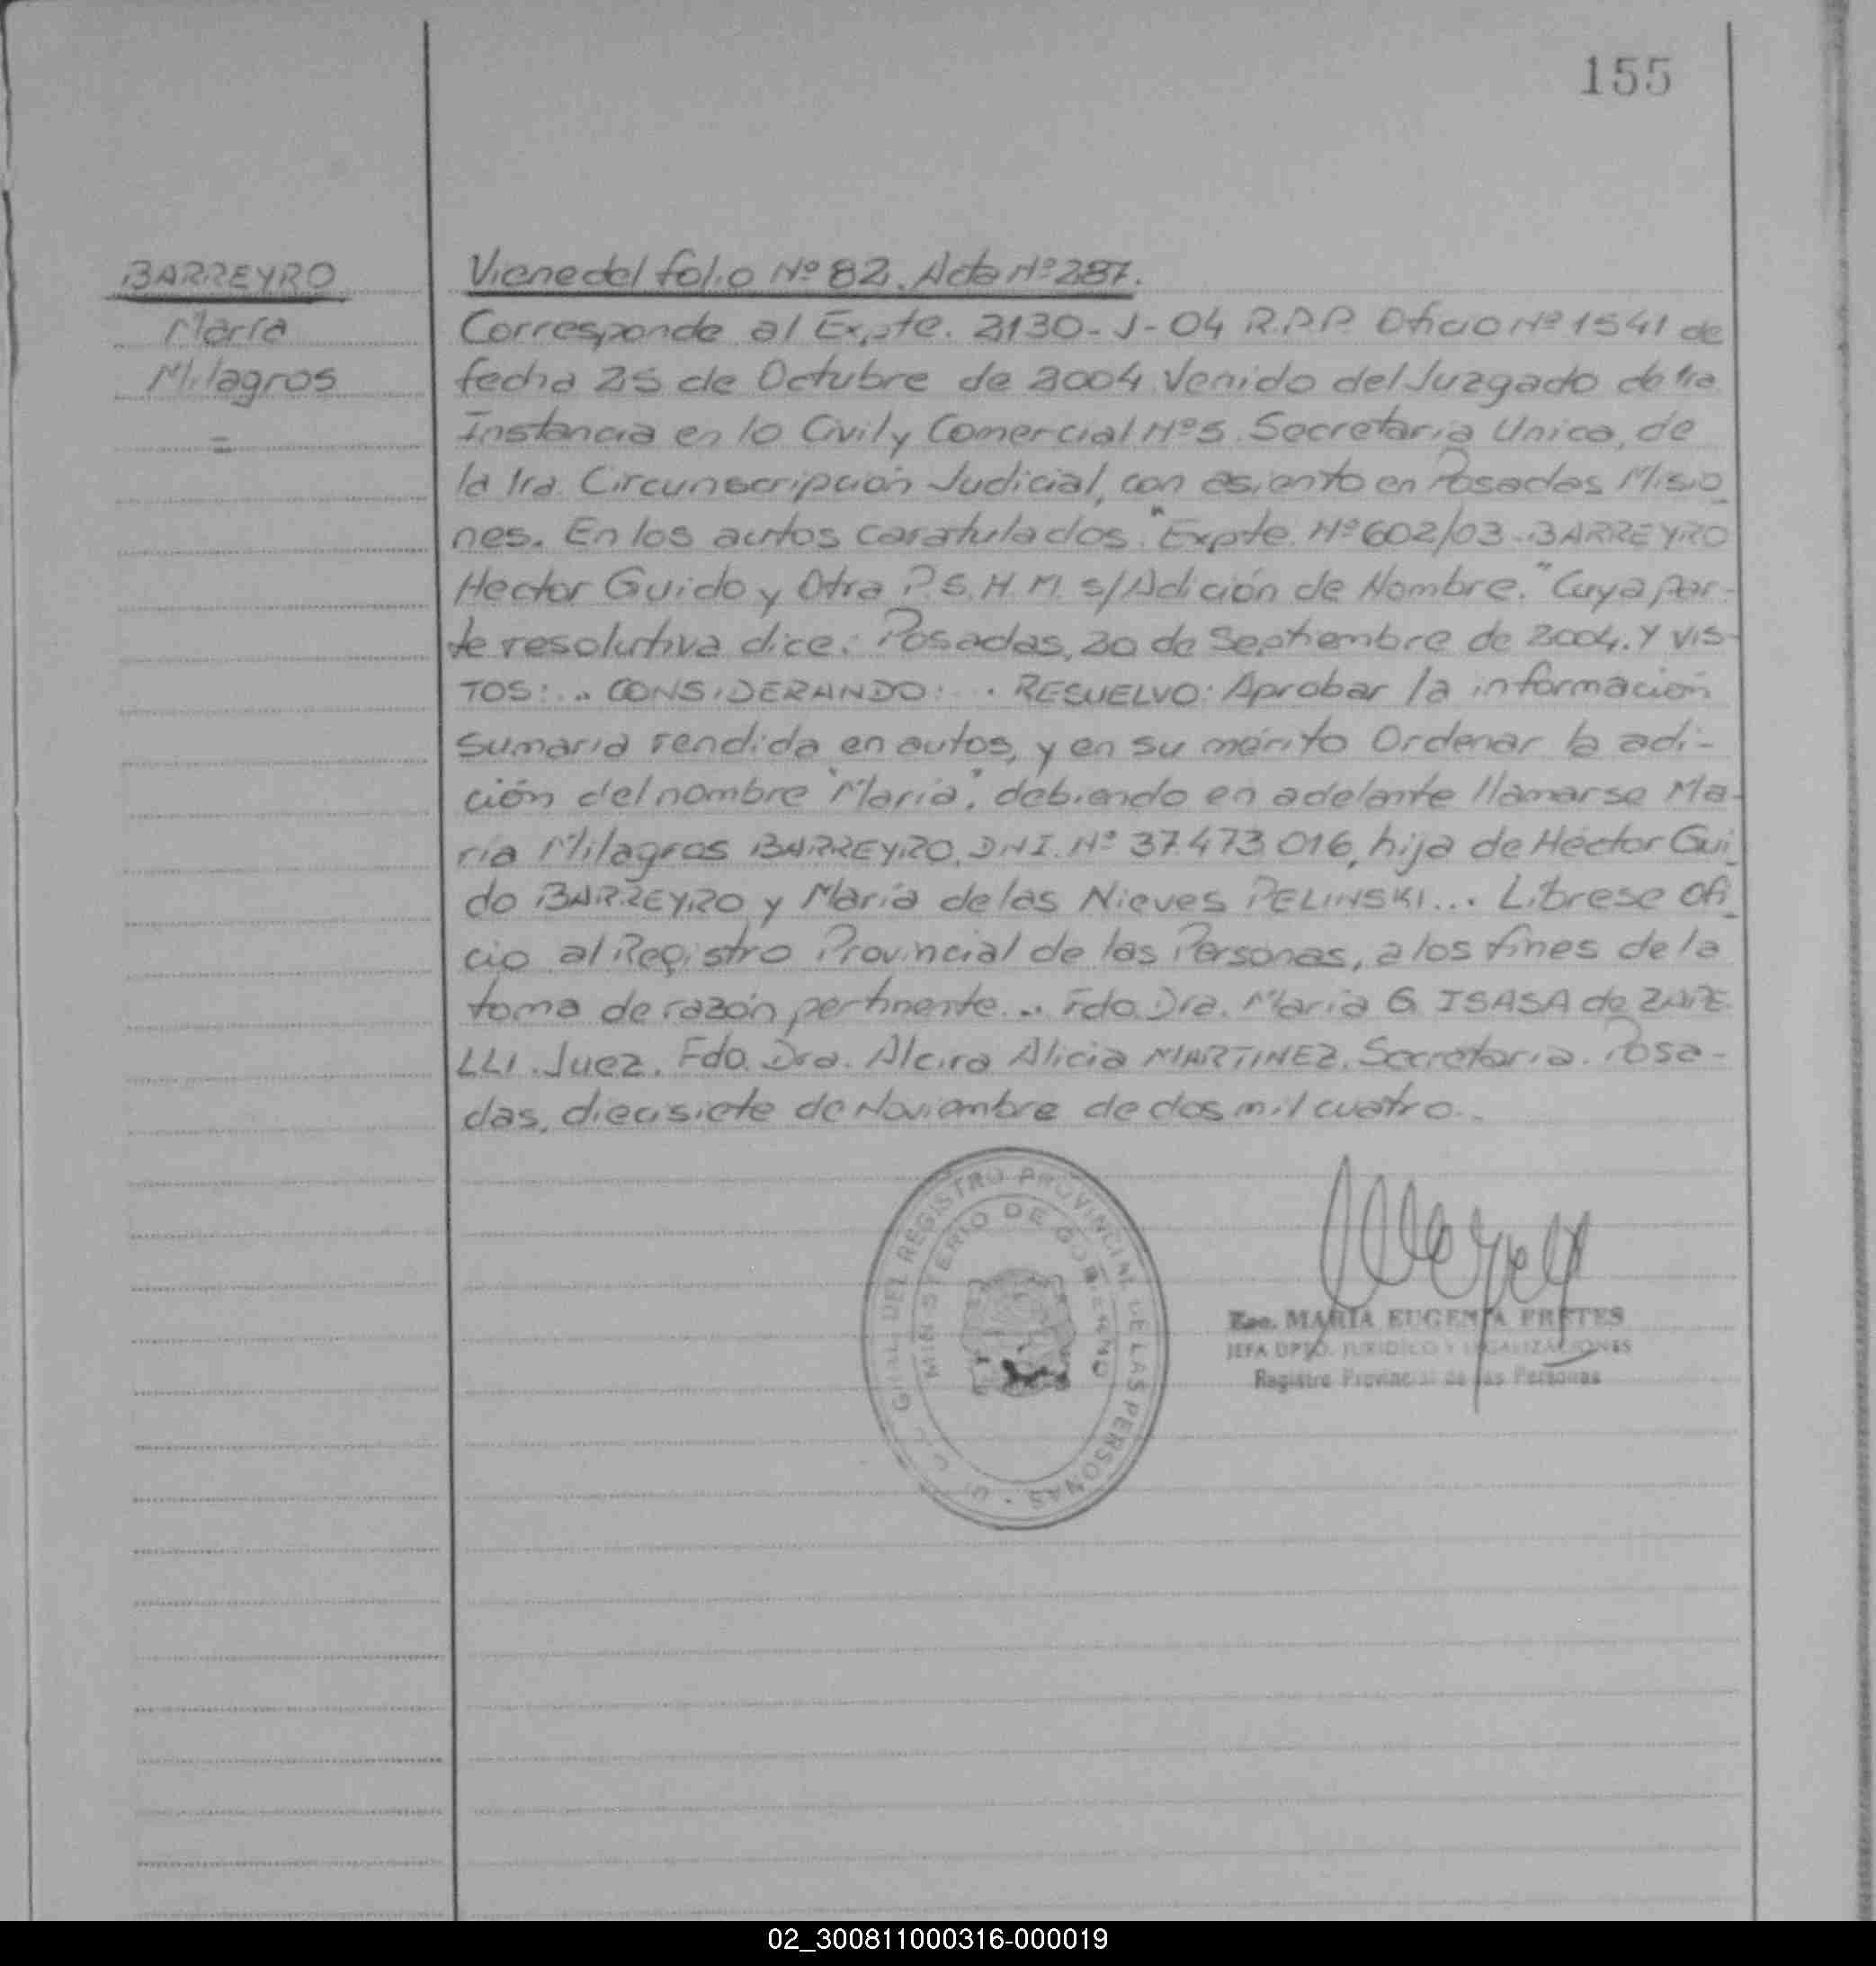 155
BARREYRO
María
Milagros
=
Viene del folio Nº 82. Acta Nº 287.
Corresponde al Expte. 2130-J-04 R.P.P. Oficio Nº 1541 de
fecha 25 de Octubre de 2004. Venido del Juzgado de 1ra.
Instancia en lo Civil y Comercial Nº 5. Secretaria Unica, de
la 1ra. Circunscripción Judicial, con asiento en Posadas Misio_
nes. En los autos caratulados. "Expte. Nº 602/03 - BARREYRO
Hector Guido y Otra P.S.H.M. s/Adición de Nombre." Cuya par-
te resolutiva dice: Posadas, 20 de Septiembre de 2004. Y VIS-
TOS: .. CONSIDERANDO: .. RESUELVO: Aprobar la información
sumaria rendida en autos, y en su mérito Ordenar la adi-
ción del nombre "María", debiendo en adelante llamarse Ma-
ría Milagros BARREYRO, DNI. Nº 37.473.016, hija de Héctor Gui_
do BARREYRO y María de las Nieves PELINSKI... Líbrese Ofi_
cio al Registro Provincial de las Personas, a los fines de la
toma de razón pertinente... Fdo. Dra. María G. ISASA de ZAPE
LLI. Juez. Fdo. Dra. Alcira Alicia MARTINEZ. Secretaria. Posa-
das, diecisiete de Noviembre de dos mil cuatro.
GRAL. DEL REGISTRO PROVINCIAL DE LAS PERSONAS
MINISTERIO DE GOBIERNO
Esc. MARIA EUGENIA FRETES
JEFA DPTO. JURIDICO Y LEGALIZACIONES
Registro Provincial de las Personas
02_300811000316-000019